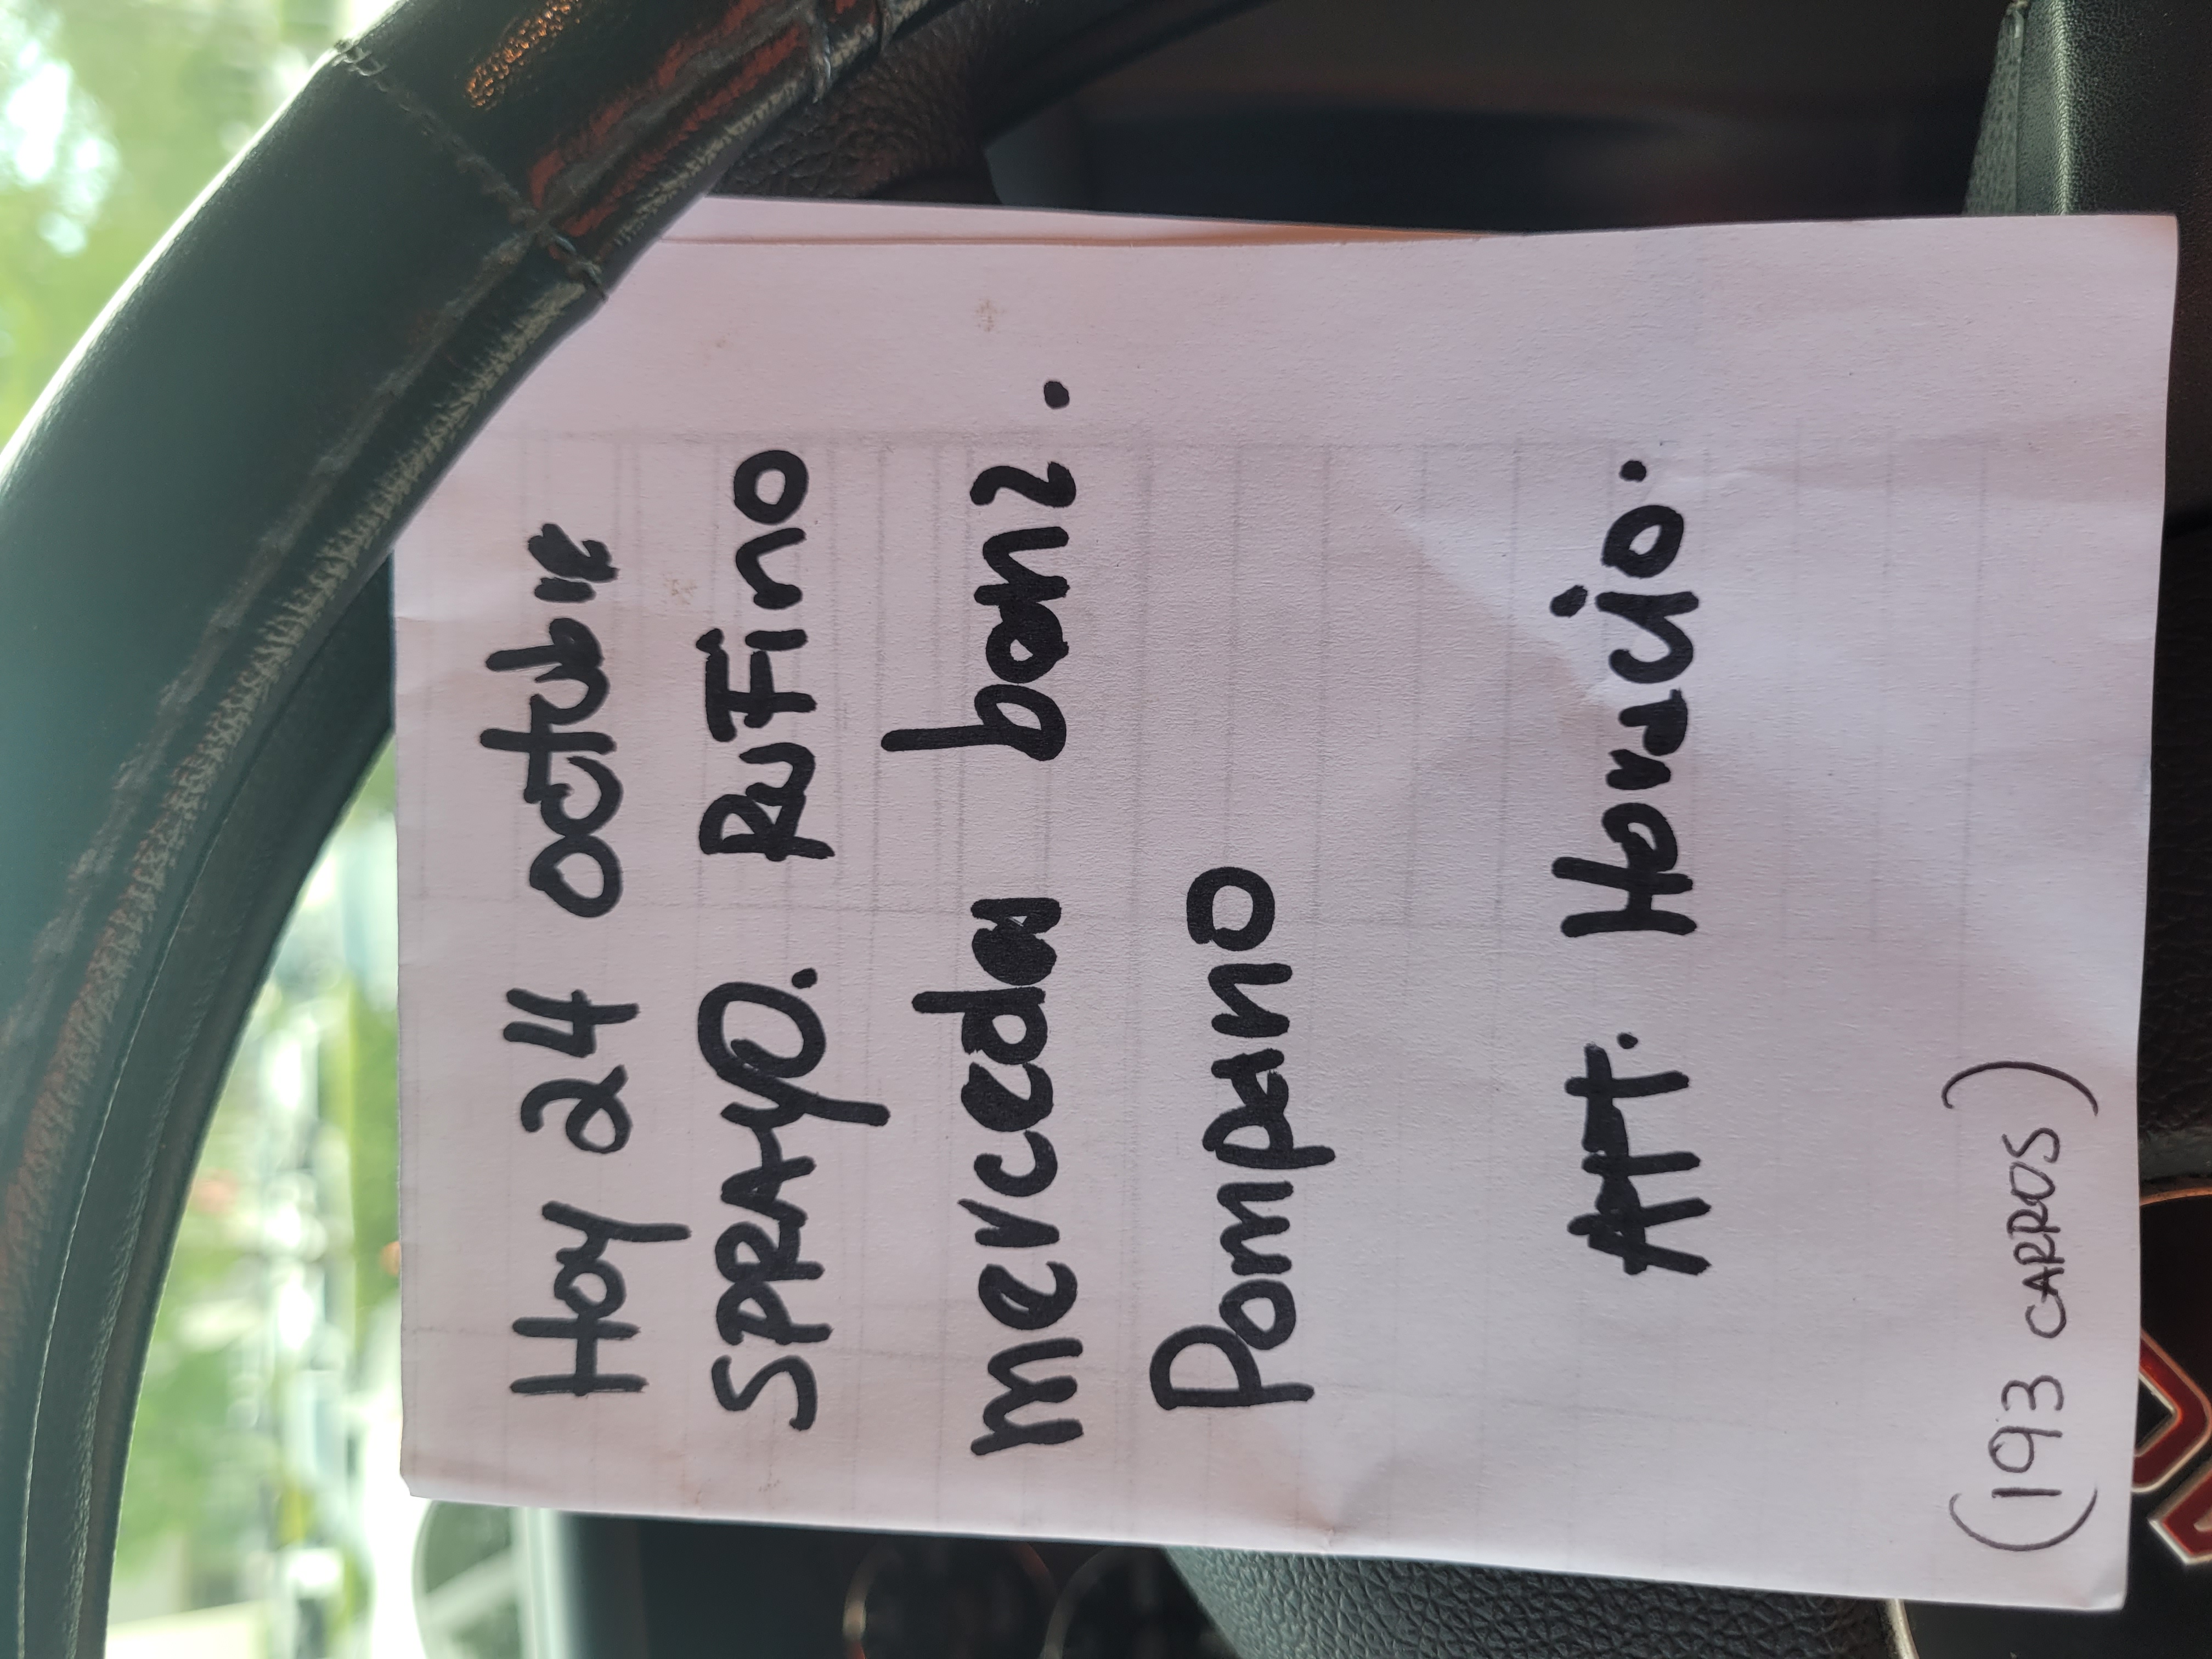 Hoy 24 octubre
SPRAYO. RUFino
mercedes benz.
Pompano
ATT. Horacio.
(193 CARROS)